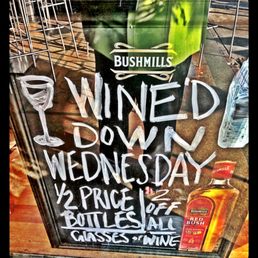 BUSHMILLS
WINE'D
DOWN
WEDNESDAY
1/2 PRICE
BOTTLES
2 OFF
ALL
GLASSES OF WINE
BUSHMILLS
RED
BUSH